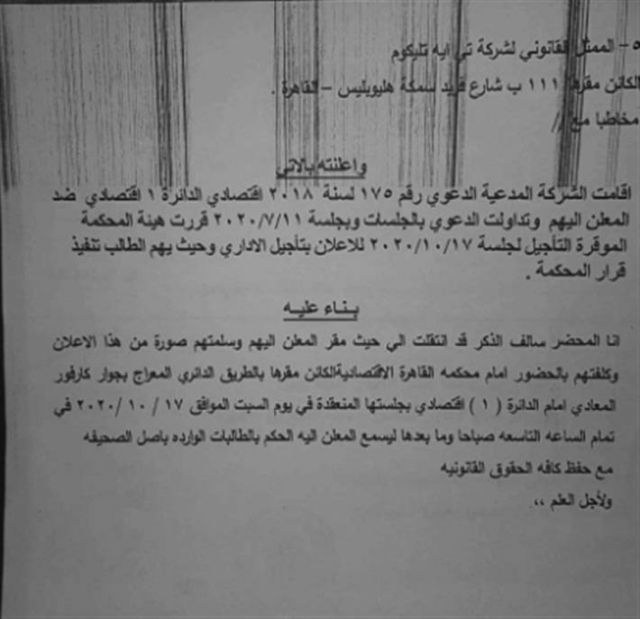 ٥- الممثل القانوني لشركة تي ايه تليكوم
الكائن مقرها ١١١ ب شارع فريد سمكة هليوبليس – القاهرة .
مخاطبا مع //
واعلنته بالاتي
اقامت الشركة المدعية الدعوي رقم ١٧٥ لسنة ٢٠١٨ اقتصادي الدائرة ١ اقتصادي ضد
المعلن اليهم وتداولت الدعوي بالجلسات وبجلسة ٢٠٢٠/٧/١١ قررت هيئة المحكمة
الموقرة التأجيل لجلسة ٢٠٢٠/١٠/١٧ للاعلان بتأجيل الاداري وحيث يهم الطالب تنفيذ
قرار المحكمة .
بناء عليه
انا المحضر سالف الذكر قد انتقلت الي حيث مقر المعلن اليهم وسلمتهم صورة من هذا الاعلان
وكلفتهم بالحضور امام محكمه القاهرة الاقتصاديةالكائن مقرها بالطريق الدائري المعراج بجوار كارفور
المعادي امام الدائرة ( ١ ) اقتصادي بجلستها المنعقدة في يوم السبت الموافق ١٧ / ١٠ / ٢٠٢٠ في
تمام الساعه التاسعه صباحا وما بعدها ليسمع المعلن اليه الحكم بالطلبات الوارده باصل الصحيفه
مع حفظ كافه الحقوق القانونيه
ولأجل العلم ،،